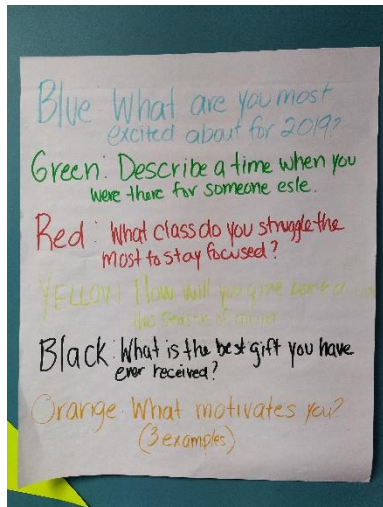 Blue What are you most
excited about for 2019?
Green: Describe a time when you
were there for someone esle.
Red: What class do you struggle the
most to stay focused?
YELLOW: How will you give back
this season of
Black: What is the best gift you have
ever received?
Orange What motivates you?
(3 examples)